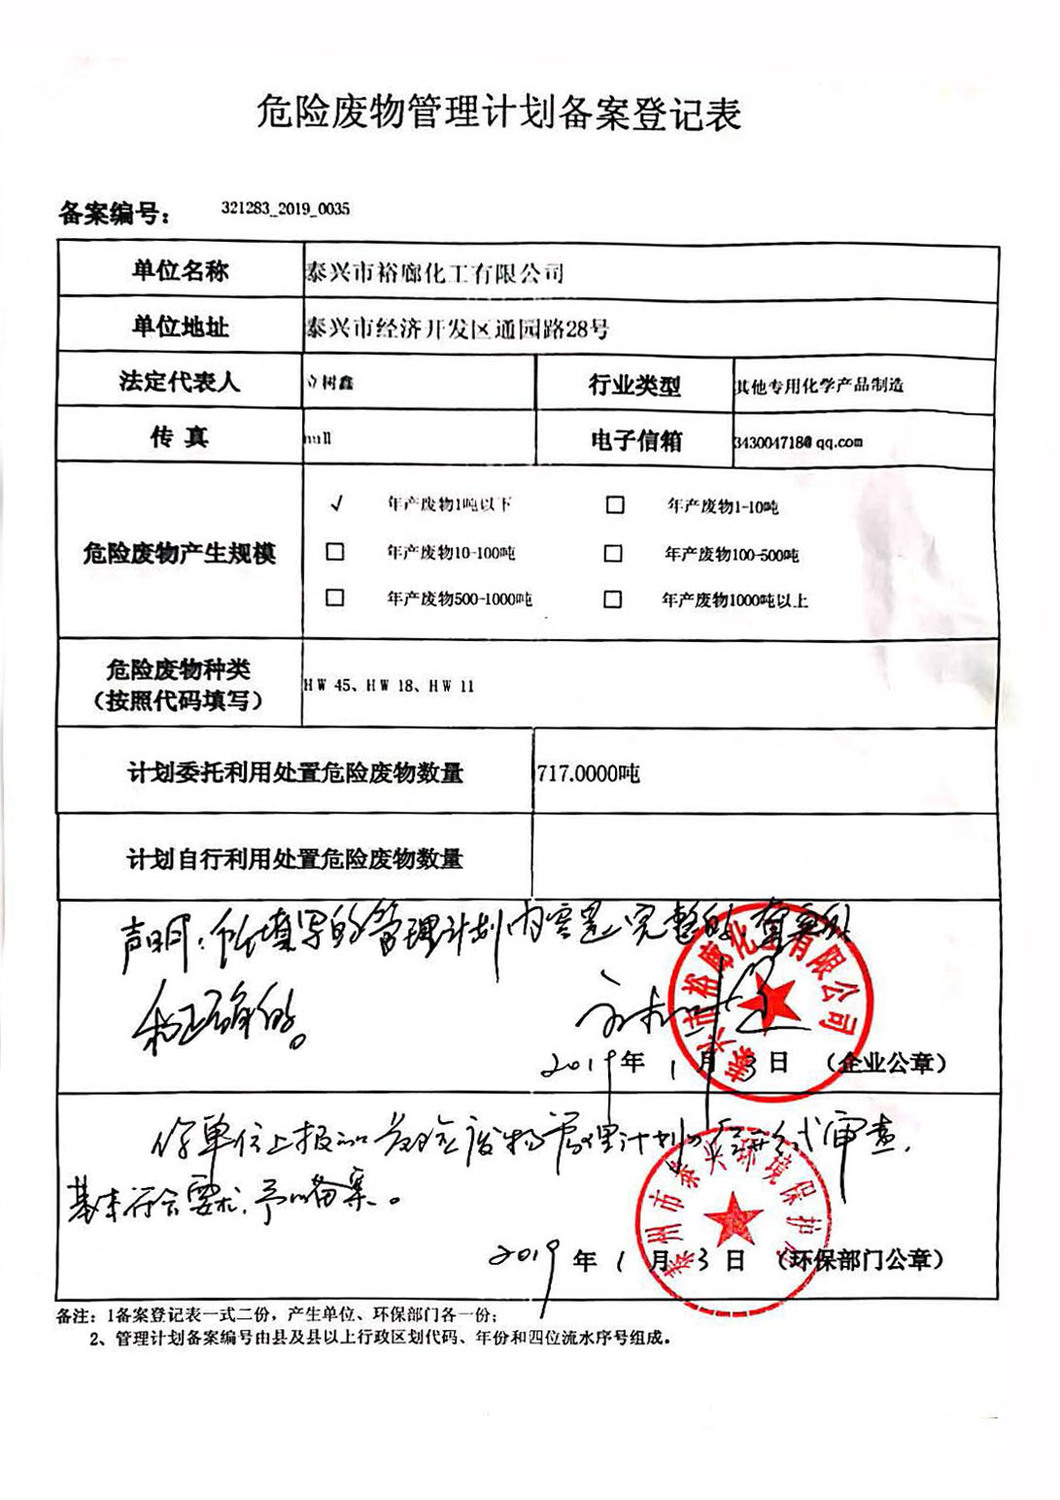 危险废物管理计划备案登记表
备案编号： 321283_2019_0035
单位名称 泰兴市裕廊化工有限公司
单位地址 泰兴市经济开发区通园路28号
法定代表人 立树鑫 行业类型 其他专用化学产品制造
传 真 null 电子信箱 343004718@qq.com
危险废物产生规模
√ 年产废物1吨以下 □ 年产废物1-10吨
□ 年产废物10-100吨 □ 年产废物100-500吨
□ 年产废物500-1000吨 □ 年产废物1000吨以上
危险废物种类
（按照代码填写） HW 45、HW 18、HW 11
计划委托利用处置危险废物数量 717.0000吨
计划自行利用处置危险废物数量
声明：所填写的管理计划内容是完整的、真实的
和正确的。
泰兴市裕廊化工有限公司
2019年 1月 3日 （企业公章）
你单位上报的危险废物管理计划 审查，
基本符合要求，予以备案。
泰州市泰兴环境保护局
2019年 1月 3日 （环保部门公章）
备注：1备案登记表一式二份，产生单位、环保部门各一份；
2、管理计划备案编号由县及县以上行政区划代码、年份和四位流水序号组成。